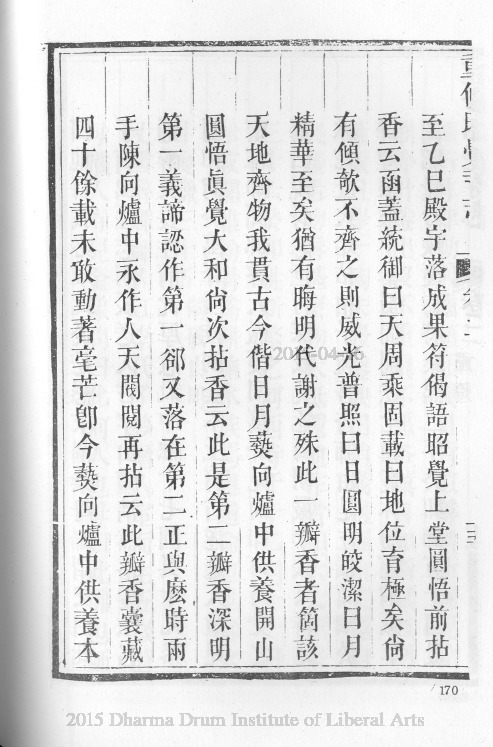 至乙巳殿宇落成果符偈語昭覺上堂圓悟前拈
香云函蓋統御曰天周乘固載曰地位育極矣尙
有傾欹不齊之則威光普照曰日圓明皎潔曰月
精華至矣猶有晦明代謝之殊此一瓣香者箇該
天地齊物我貫古今偕日月爇向爐中供養開山
圓悟眞覺大和尙次拈香云此是第二瓣香深明
第一義諦認作第一郤又落在第二正與麽時兩
手陳向爐中永作人天閥閱再拈云此瓣香囊藏
四十餘載未敢動著毫芒卽今爇向爐中供養本
170
2015 Dharma Drum Institute of Liberal Arts